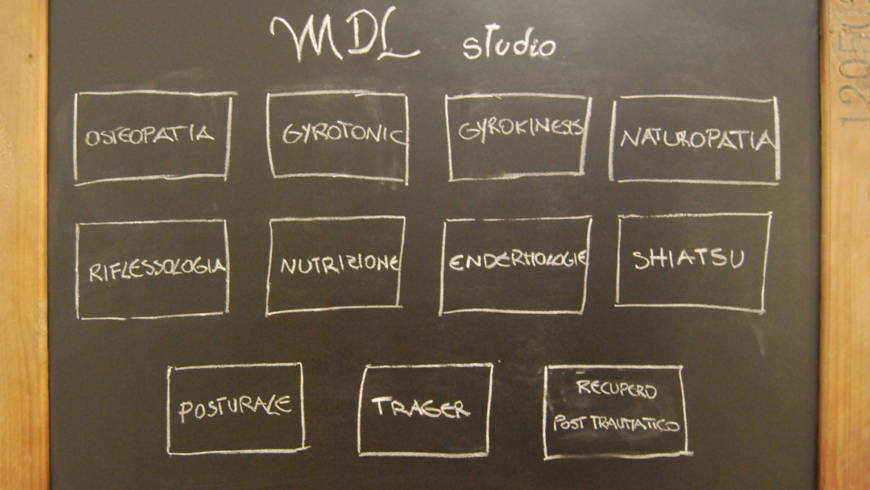 MDL studio
OSTEOPATIA
GYROTONIC
GYROKINESIS
NATUROPATIA
RIFLESSOLOGIA
NUTRIZIONE
ENDERMOLOGIE
SHIATSU
POSTURALE
TRAGER
RECUPERO
POST TRAUMATICO